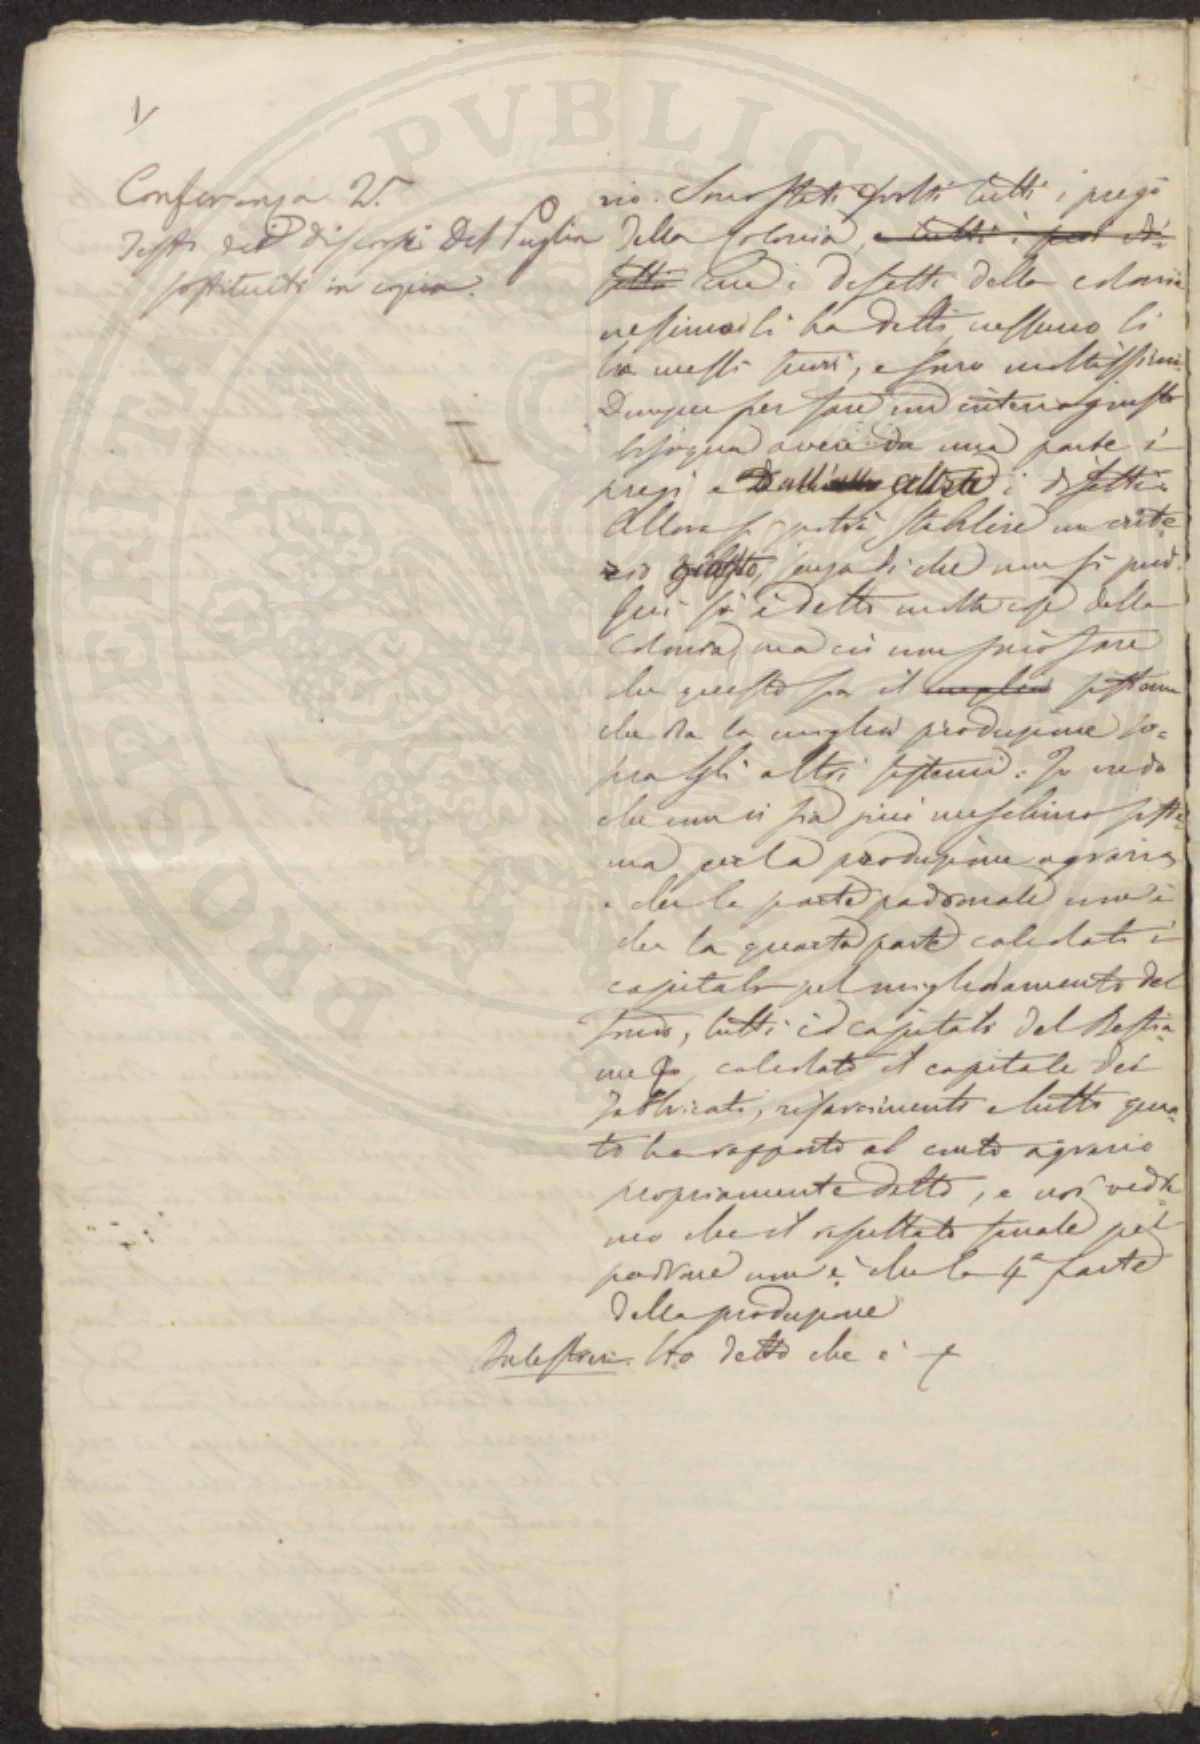 1/
Conferenza 2ª
Testi dei discorsi Del Puglia
sostituiti in copia.
rio. Sono stati svolti tutti i pregi
della Colonia, e tutti i suoi di=
fetti ma i difetti della colonia
nessuno li ha detti, nessuno li
ha messi fuori, e sono moltissimi.
Dunque per fare un criterio giusto
bisogna avere da una parte i
pregi e dall'altra i difetti
allora si potrà stabilire un crite=
rio giusto, senza di che non si può.
Qui si è detto molte cose della
Colonia, ma ciò non può fare
che questo sia il meglio sistema
che dia la miglior produzione so=
pra gli altri sistemi. Io credo
che non vi sia più meschino siste=
ma per la produzione agraria
che la parte padronale non è
che la quarta parte calcolati i
capitali pel miglioramento del
fondo, tutti i capitali del Bestia=
me, calcolato il capitale dei
fabbricati, risarcimenti e tutto quan=
to ha rapporto al conto agrario
propriamente detto, e noi vedia=
mo che il risultato finale pel
padrone non è che la 4ª parte
della produzione
Balestrieri. Ha detto che è
PUBLIC
PROSPERITA